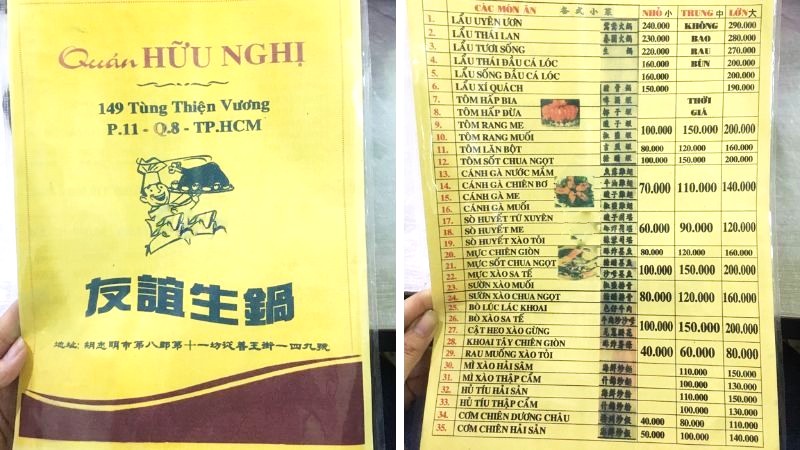 Quán HỮU NGHỊ
149 Tùng Thiện Vương
P.11 - Q.8 - TP.HCM
友誼生鍋
地址: 胡志明市第八郡第十一坊從善王街一四九號
CÁC MÓN ĂN 各式小菜 NHỎ 小 TRUNG 中 LỚN 大
1. LẨU UYÊN ƯƠN 鴛鴦火鍋 240.000 KHÔNG 290.000
2. LẨU THÁI LAN 泰國火鍋 230.000 BAO 280.000
3. LẨU TƯƠI SỐNG 生鍋 220.000 RAU 270.000
4. LẨU THÁI ĐẦU CÁ LÓC 160.000 BÚN 200.000
5. LẨU SỐNG ĐẦU CÁ LÓC 160.000 200.000
6. LẨU XÍ QUÁCH 150.000 190.000
7. TÔM HẤP BIA THỜI
8. TÔM HẤP DỪA GIÁ
9. TÔM RANG ME 100.000 150.000 200.000
10. TÔM RANG MUỐI
11. TÔM LĂN BỘT 80.000 120.000 160.000
12. TÔM SỐT CHUA NGỌT 100.000 150.000 200.000
13. CÁNH GÀ NƯỚC MẮM
14. CÁNH GÀ CHIÊN BƠ 70.000 110.000 140.000
15. CÁNH GÀ ME
16. CÁNH GÀ MUỐI
17. SÒ HUYẾT TỨ XUYÊN
18. SÒ HUYẾT ME 60.000 90.000 120.000
19. SÒ HUYẾT XÀO TỎI
20. MỰC CHIÊN GIÒN 80.000 120.000 160.000
21. MỰC SỐT CHUA NGỌT 100.000 150.000 200.000
22. MỰC XÀO SA TẾ
23. SƯỜN XÀO MUỐI
24. SƯỜN XÀO CHUA NGỌT 80.000 120.000 160.000
25. BÒ LÚC LẮC KHOAI
26. BÒ XÀO SA TẾ 100.000 150.000 200.000
27. CẬT HEO XÀO GỪNG
28. KHOAI TÂY CHIÊN GIÒN 40.000 60.000 80.000
29. RAU MUỐNG XÀO TỎI
30. MÌ XÀO HẢI SÂM 110.000 150.000
31. MÌ XÀO THẬP CẨM 100.000 130.000
32. HỦ TÍU HẢI SẢN 110.000 150.000
33. HỦ TÍU THẬP CẨM 100.000 130.000
34. CƠM CHIÊN DƯƠNG CHÂU 40.000 80.000 110.000
35. CƠM CHIÊN HẢI SẢN 50.000 100.000 140.000